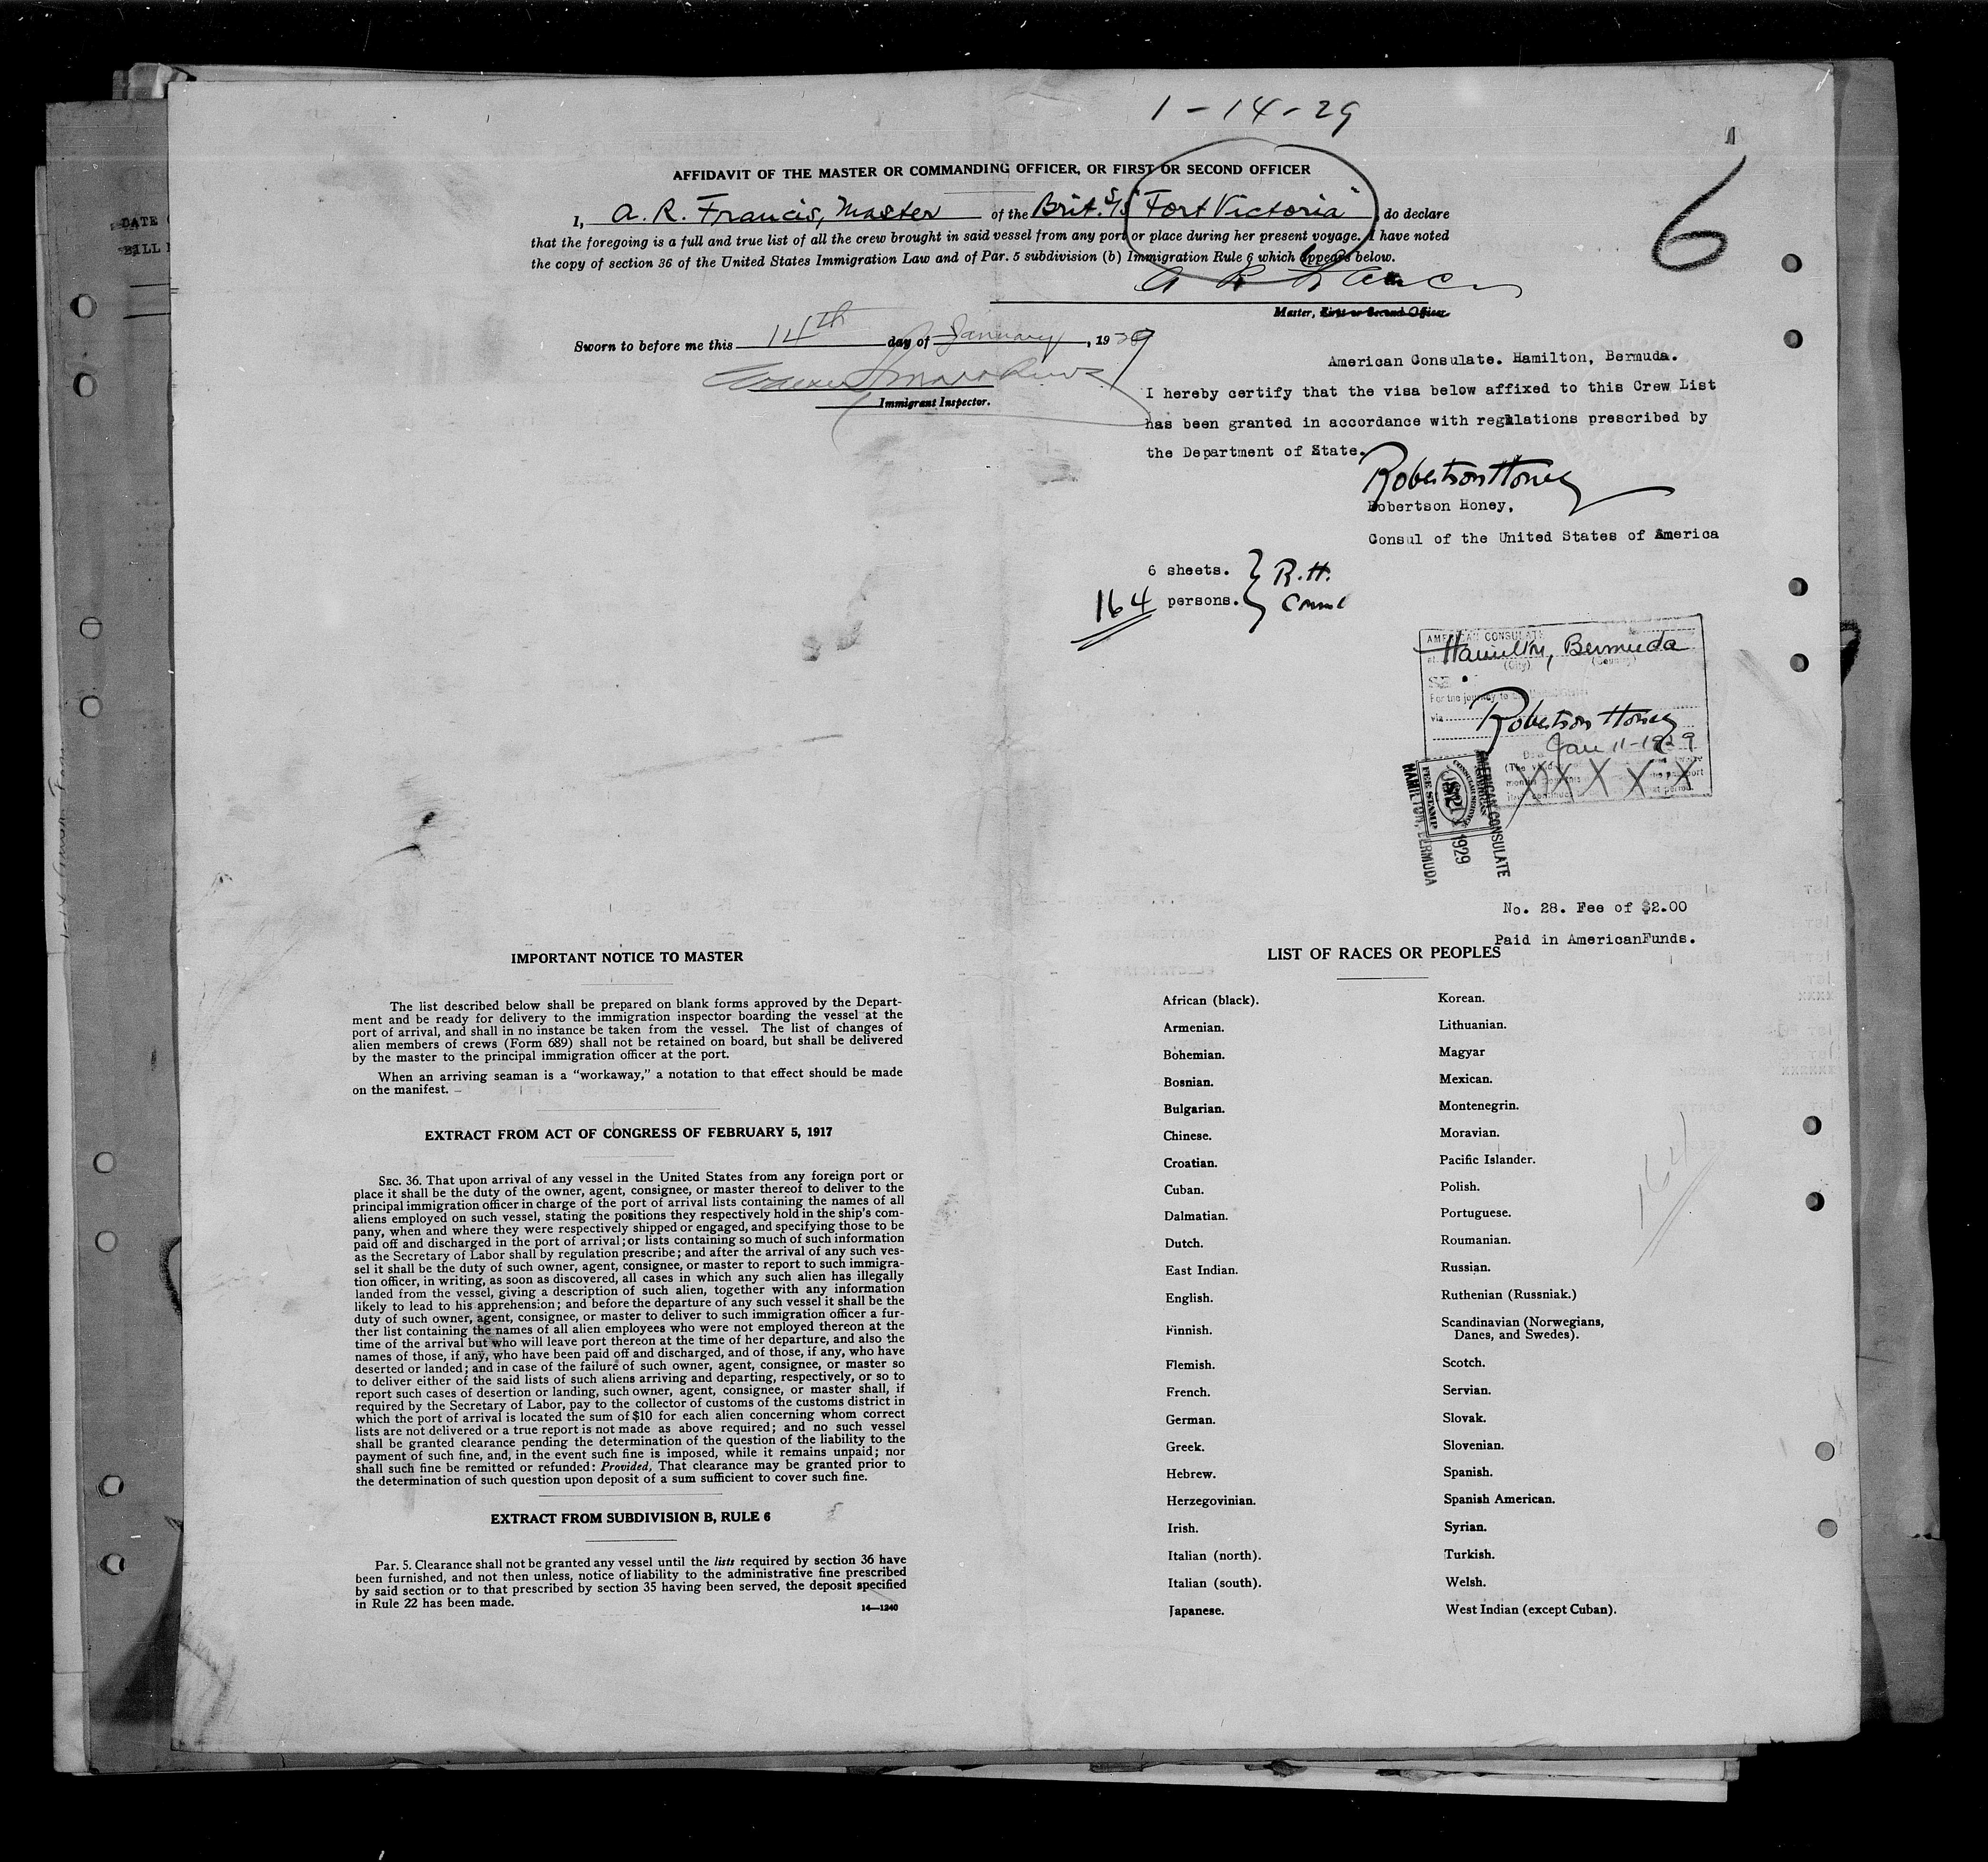 1-14-29
6
AFFIDAVIT OF THE MASTER OR COMMANDING OFFICER, OR FIRST OR SECOND OFFICER
I, A. R. Francis, Master of the Brit. S/S "Fort Victoria", do declare
that the foregoing is a full and true list of all the crew brought in said vessel from any port or place during her present voyage. I have noted
the copy of section 36 of the United States Immigration Law and of Par. 5 subdivision (b) Immigration Rule 6 which appears below.
A R Francis
Master, First or Second Officer.
Sworn to before me this 14th day of January, 1929
Immigrant Inspector.
American Consulate. Hamilton, Bermuda.
I hereby certify that the visa below affixed to this Crew List
has been granted in accordance with regulations prescribed by
the Department of State.
Robertson Honey
Robertson Honey,
Consul of the United States of America
6 sheets. } R.H.
164 persons. } Consul
AMERICAN CONSULATE
at Hamilton, Bermuda
(City) (Country)
SE
For the journey to the United States
via
Robertson Honey
Jan 11-1929
XXXXXX
AMERICAN CONSULATE
FEE STAMP
1929
HAMILTON, BERMUDA
No. 28. Fee of $2.00
Paid in AmericanFunds.
IMPORTANT NOTICE TO MASTER
The list described below shall be prepared on blank forms approved by the Depart-
ment and be ready for delivery to the immigration inspector boarding the vessel at the
port of arrival, and shall in no instance be taken from the vessel. The list of changes of
alien members of crews (Form 689) shall not be retained on board, but shall be delivered
by the master to the principal immigration officer at the port.
When an arriving seaman is a "workaway," a notation to that effect should be made
on the manifest.
EXTRACT FROM ACT OF CONGRESS OF FEBRUARY 5, 1917
SEC. 36. That upon arrival of any vessel in the United States from any foreign port or
place it shall be the duty of the owner, agent, consignee, or master thereof to deliver to the
principal immigration officer in charge of the port of arrival lists containing the names of all
aliens employed on such vessel, stating the positions they respectively hold in the ship's com-
pany, when and where they were respectively shipped or engaged, and specifying those to be
paid off and discharged in the port of arrival; or lists containing so much of such information
as the Secretary of Labor shall by regulation prescribe; and after the arrival of any such ves-
sel it shall be the duty of such owner, agent, consignee, or master to report to such immigra-
tion officer, in writing, as soon as discovered, all cases in which any such alien has illegally
landed from the vessel, giving a description of such alien, together with any information
likely to lead to his apprehension; and before the departure of any such vessel it shall be the
duty of such owner, agent, consignee, or master to deliver to such immigration officer a fur-
ther list containing the names of all alien employees who were not employed thereon at the
time of the arrival but who will leave port thereon at the time of her departure, and also the
names of those, if any, who have been paid off and discharged, and of those, if any, who have
deserted or landed; and in case of the failure of such owner, agent, consignee, or master so
to deliver either of the said lists of such aliens arriving and departing, respectively, or so to
report such cases of desertion or landing, such owner, agent, consignee, or master shall, if
required by the Secretary of Labor, pay to the collector of customs of the customs district in
which the port of arrival is located the sum of $10 for each alien concerning whom correct
lists are not delivered or a true report is not made as above required; and no such vessel
shall be granted clearance pending the determination of the question of the liability to the
payment of such fine, and, in the event such fine is imposed, while it remains unpaid; nor
shall such fine be remitted or refunded: Provided, That clearance may be granted prior to
the determination of such question upon deposit of a sum sufficient to cover such fine.
EXTRACT FROM SUBDIVISION B, RULE 6
Par. 5. Clearance shall not be granted any vessel until the lists required by section 36 have
been furnished, and not then unless, notice of liability to the administrative fine prescribed
by said section or to that prescribed by section 35 having been served, the deposit specified
in Rule 22 has been made.
14—1240
LIST OF RACES OR PEOPLES
African (black).
Armenian.
Bohemian.
Bosnian.
Bulgarian.
Chinese.
Croatian.
Cuban.
Dalmatian.
Dutch.
East Indian.
English.
Finnish.
Flemish.
French.
German.
Greek.
Hebrew.
Herzegovinian.
Irish.
Italian (north).
Italian (south).
Japanese.
Korean.
Lithuanian.
Magyar
Mexican.
Montenegrin.
Moravian.
Pacific Islander.
Polish.
Portuguese.
Roumanian.
Russian.
Ruthenian (Russniak.)
Scandinavian (Norwegians,
Danes, and Swedes).
Scotch.
Servian.
Slovak.
Slovenian.
Spanish.
Spanish American.
Syrian.
Turkish.
Welsh.
West Indian (except Cuban).
164
DATE
BILL